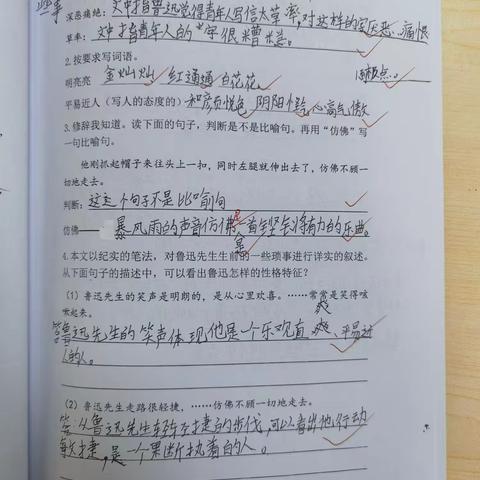 深恶痛绝：文中指鲁迅觉得青年人写信太草率，对这样的字厌恶、痛恨
草率：文中指青年人的字很糟糕。
2.按要求写词语。
明亮亮 金灿灿 红通通 白花花
平易近人（写人的态度的）和颜悦色 阴阳怪 心高气傲
3.修辞我知道。读下面的句子，判断是不是比喻句。再用“仿佛”写
一句比喻句。
他刚抓起帽子来往头上一扣，同时左腿就伸出去了，仿佛不顾一
切地走去。
判断：这这个句子不是比喻句
仿佛—— 暴风雨的声音仿佛是一首坚定有力的乐曲。
4.本文以纪实的笔法，对鲁迅先生生前的一些琐事进行详实的叙述。
从下面句子的描述中，可以看出鲁迅怎样的性格特征？
（1）鲁迅先生的笑声是明朗的，是从心里欢喜。……常常是笑得咳
嗽起来。
答：鲁迅先生的笑声体现他是一个乐观直爽、平易近
人的人。
（2）鲁迅先生走路很轻捷，……仿佛不顾一切地走去。
答：从鲁迅先生轻捷的步伐，可以看出他行动
敏捷，是一个果断执着的人。